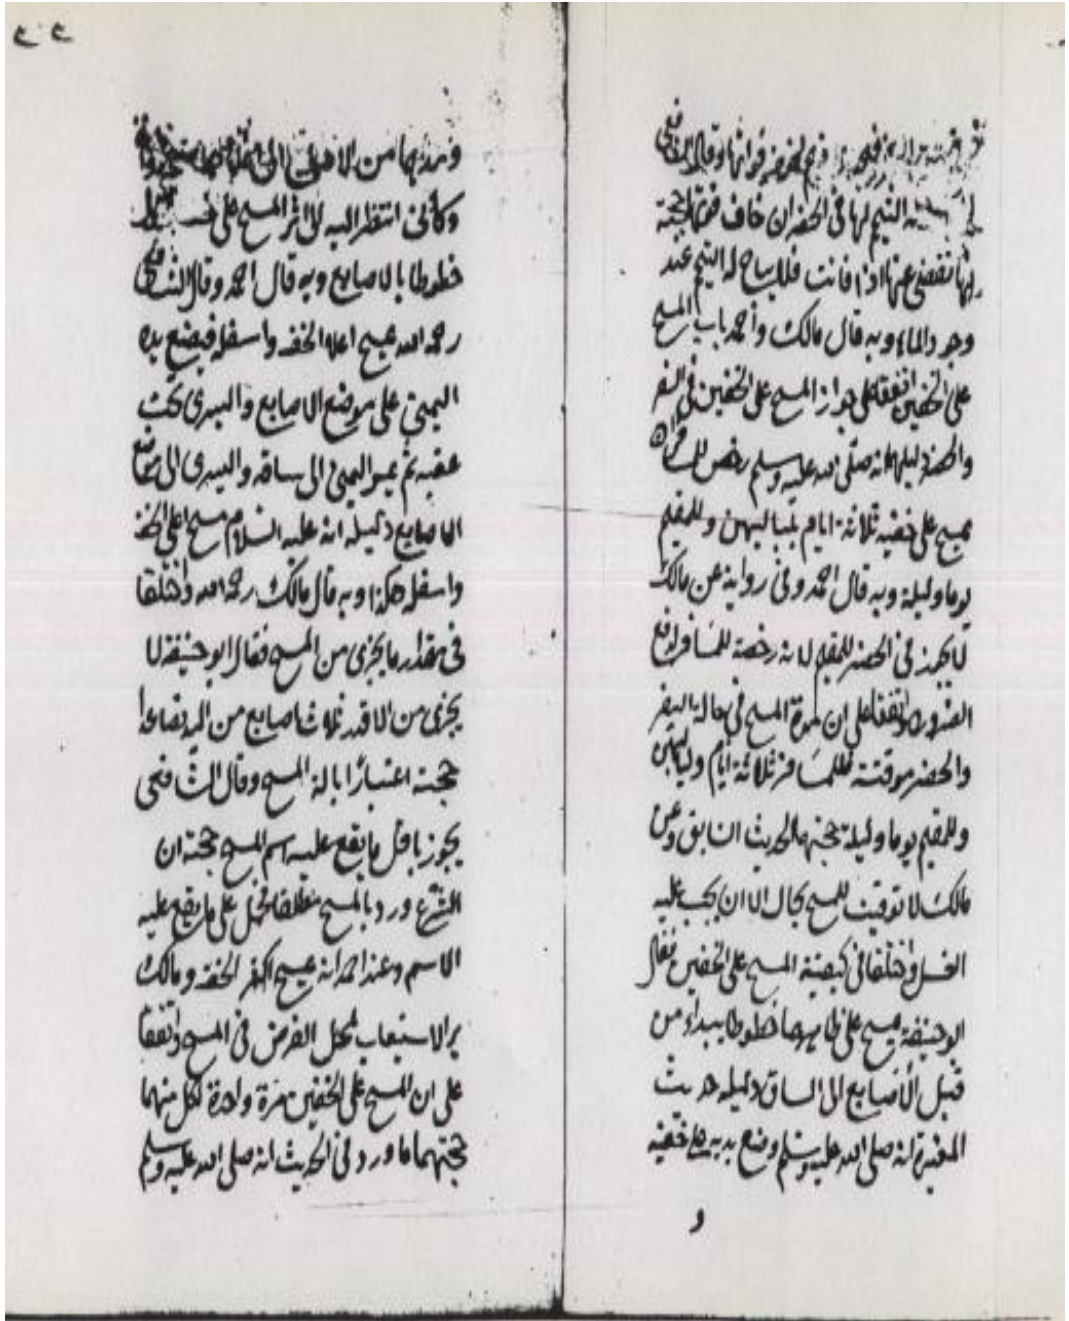 التيمم لها في الحضر ان خاف فوتها حجته
انها تقضى عنها اذا فاتت فلا يباح له التيمم عند
وجود الماء وبه قال مالك وأحمد باب المسح
على الخفين اتفقا على جواز المسح على الخفين في السفر
والحضر دليلهما انه صلى الله عليه وسلم رخص للمسافر ان
يمسح على خفيه ثلاثة ايام بلياليهن وللمقيم
يوما وليلة وبه قال احمد وفي رواية عن مالك
لا يجوز في الحضر للمقيم لانه رخصة للمسافر لدفع
الضرورة واتفقا على ان مدة المسح في حالة السفر
والحضر موقتة للمسافر ثلاثة ايام ولياليهن
وللمقيم يوما وليلة حجتهما الحديث السابق وعن
مالك لا توقيت للمسح بحال الا ان يجب عليه
الغسل واختلفا في كيفية المسح على الخفين فقال
ابو حنيفة يمسح على ظاهرهما خطوطا يبداء من
قبل الأصابع الى الساق دليله حديث
المغيرة انه صلى الله عليه وسلم وضع يديه على خفيه
و
ومدهما من الاصابع الى
وكأني انتظر اليه الى اثر المسح على
خطوطا بالاصابع وبه قال احمد وقال الشافعي
رحمه الله يمسح اعلا الخف واسفله فيضع يده
اليمنى على موضع الاصابع واليسرى تحت
عقبه ثم يمر اليمنى الى ساقه واليسرى الى
الاصابع دليله انه عليه السلام مسح اعلى الخف
واسفله هكذا وبه قال مالك رحمه الله واختلفا
في مقدار ما يجزى من المسح فقال ابو حنيفة لا
يجزى من الا قدر ثلاث اصابع من اليد فصاعدا
حجته اعتبارًا بالة المسح وقال الشافعي
يجوز باقل ما يقع عليه اسم المسح حجته ان
الشرع ورد بالمسح مطلقا فحمل على ما يقع عليه
الاسم وعند احمد انه يمسح اكثر الخف ومالك
يرى الاستيعاب لمحل الفرض في المسح واتفقا
على ان المسح على الخفين مرة واحدة لكل منهما
حجتهما ما ورد في الحديث انه صلى الله عليه وسلم